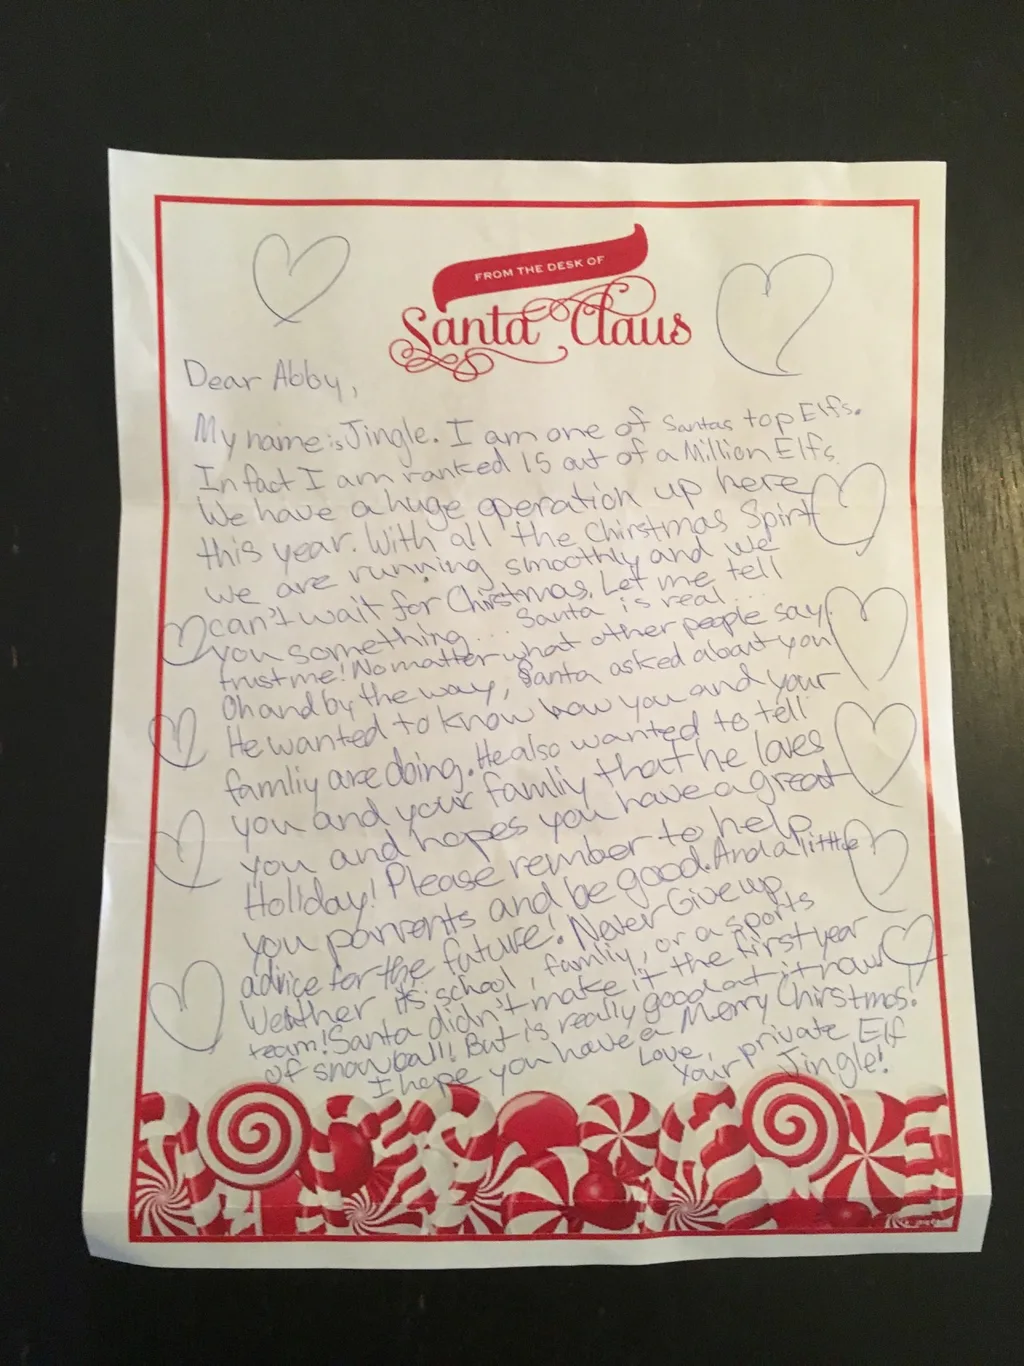 FROM THE DESK OF
Santa Claus
Dear Abby,
My name is Jingle. I am one of Santas top Elfs.
In fact I am ranked 15 out of a Million Elfs.
We have a huge operation up here
this year. With all the Chirstmas Spirt
we are running smoothly and we
can't wait for Chirstmas. Let me tell
you something... Santa is real...
trust me! No matter what other people say.
Oh and by the way, Santa asked about you
He wanted to know how you and your
famliy are doing. He also wanted to tell
you and your famliy that he loves
you and hopes you have a great
Holiday! Please rember to help
you parrents and be good. And a little
advice for the future! Never Give up
Weather its school, famliy, or a sports
team! Santa didn't make it the first year
of snowball! But is really good at it now!
I hope you have a Merry Chirstmas!
Love,
Your private Elf
Jingle!